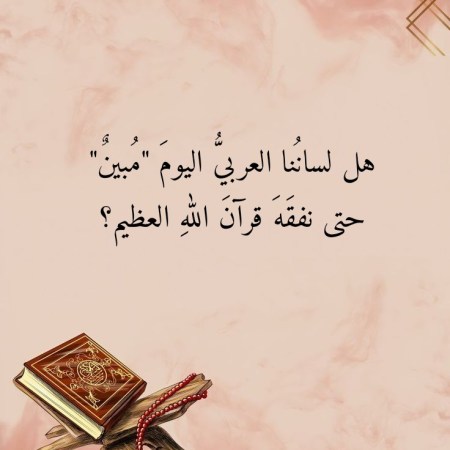 هل لسانُنا العربيُّ اليومَ "مُبينٌ"
حتى نفقَهَ قرآنَ اللهِ العظيم؟